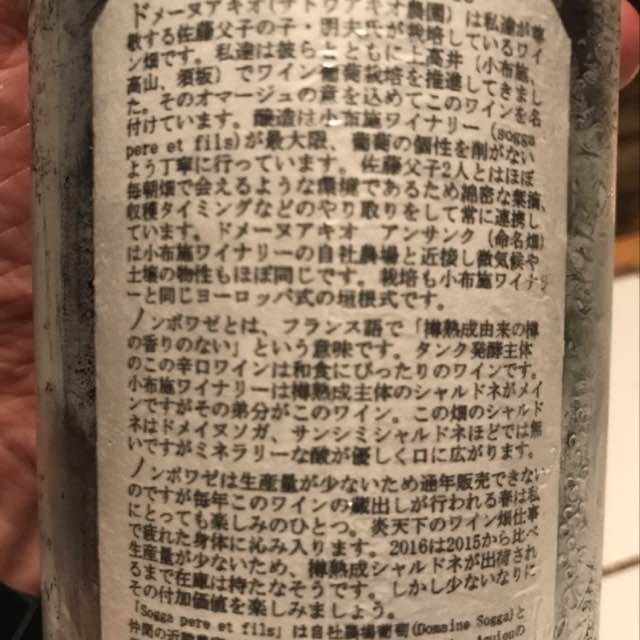 ドメーヌアキオ(サトウアキオ農園)は私達が尊
敬する佐藤父子の子・明夫氏が栽培しているワイ
ン畑です。私達は彼らとともに上高井(小布施、
高山、須坂)でワイン葡萄栽培を推進してきまし
た。そのオマージュの意を込めてこのワインを名
付けています。醸造は小布施ワイナリー(Sogga
pere et fils)が最大限、葡萄の個性を削がない
よう丁寧に行っています。佐藤父子2人とはほぼ
毎朝畑で会えるような環境であるため綿密な葉摘、
収穫タイミングなどのやり取りをして常に連携し
ています。ドメーヌアキオ アンサンク(命名畑)
は小布施ワイナリーの自社農場と近接し微気候や
土壌の物性もほぼ同じです。栽培も小布施ワイナリ
ーと同じヨーロッパ式の垣根式です。
ノンボワゼとは、フランス語で「樽熟成由来の樽
の香りのない」という意味です。タンク発酵主体
のこの辛口ワインは和食にぴったりのワインです。
小布施ワイナリーは樽熟成主体のシャルドネがメイ
ンですがその弟分がこのワイン。この畑のシャルド
ネはドメイヌソガ、サンシミシャルドネほどでは無
いですがミネラリーな酸が優しく口に広がります。
ノンボワゼは生産量が少ないため通年販売できない
のですが毎年このワインの蔵出しが行われる春は私
にとっても楽しみのひとつ。炎天下のワイン畑仕事
で疲れた身体に沁み入ります。2016は2015から比べ
生産量が少ないため、樽熟成シャルドネが出荷され
るまで在庫は持たなそうです。しかし少ないなりに
その付加価値を楽しみましょう。
「Sogga pere et fils」は自社農場葡萄(Domaine Sogga)と